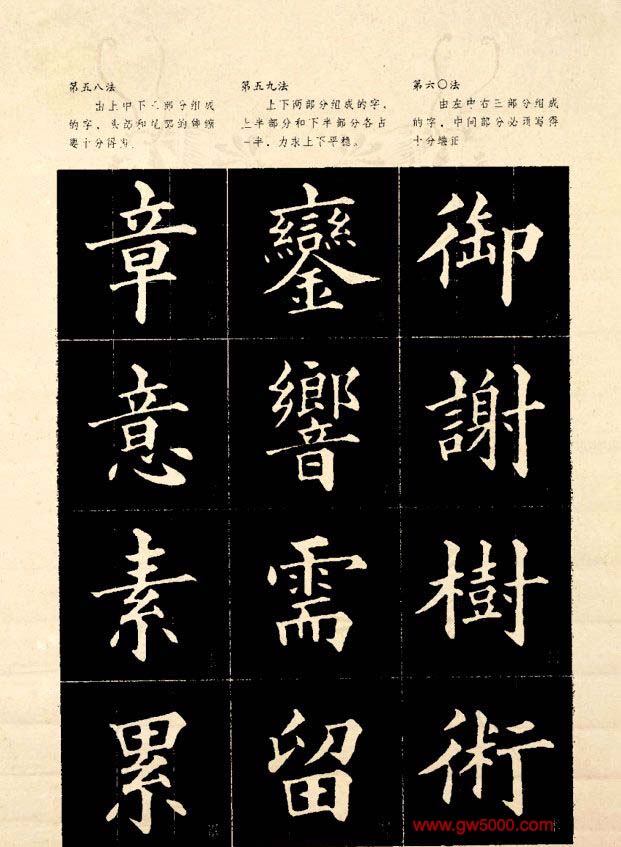 第五八法
由上中下三部分组成
的字，头部和尾部的伸缩
要十分得为
第五九法
上下两部分组成的字，
上半部分和下半部分各占
一半，力求上下平稳。
第六〇法
由左中右三部分组成
的字，中间部分必须写得
十分端正
章 鑾 御
意 響 謝
素 需 樹
累 留 術
www.gw5000.com